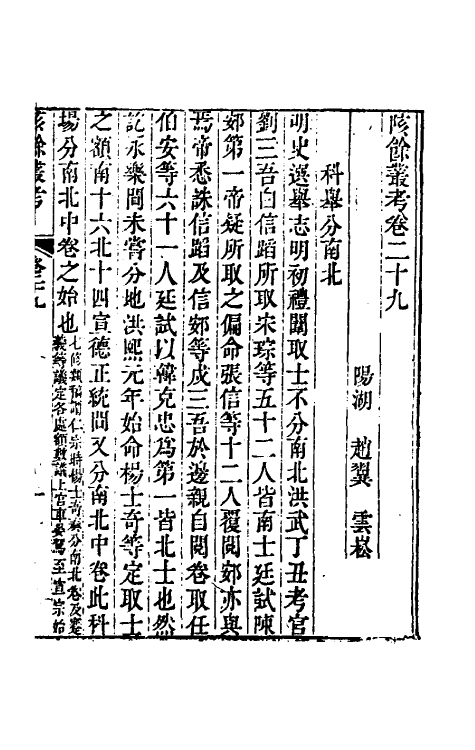 陔餘叢考卷二十九
陽湖 趙翼 雲崧
科舉分南北
明史選舉志明初禮闈取士不分南北洪武丁丑考官
劉三吾白信蹈所取宋琮等五十二人皆南士廷試陳
䢿第一帝疑所取之偏命張信等十二人覆閱䢿亦與
焉帝悉誅信蹈及信䢿等戍三吾於邊親自閱卷取任
伯安等六十一人廷試以韓克忠爲第一皆北士也然
訖永樂間未嘗分地洪熙元年始命楊士奇等定取士
之額南十六北十四宣德正統間又分南北中卷此科
塲分南北中卷之始也七修類稿謂仁宗時楊士奇奏分南北卷及蹇
義等議定各處額數議上宫車晏駕至宣宗始
陔餘叢考
卷二十九
一